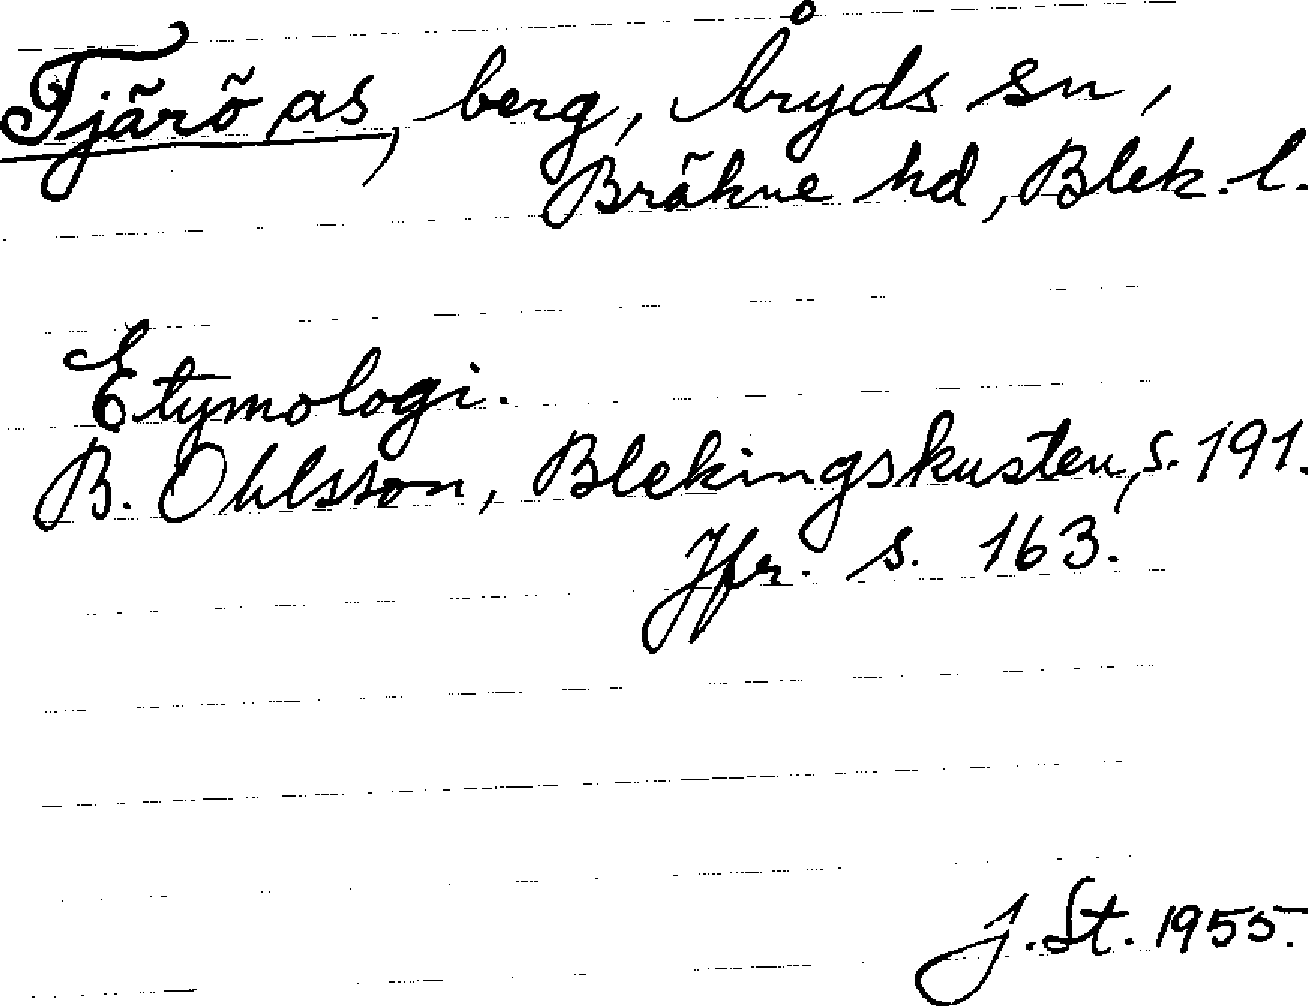 Tjärö as, berg, Åryds sn,
Bräkne hd, Blek. l.
Etymologi.
B. Ohlsson, Blekingskusten, s. 191.
Jfr. s. 163.
J. St. 1955.